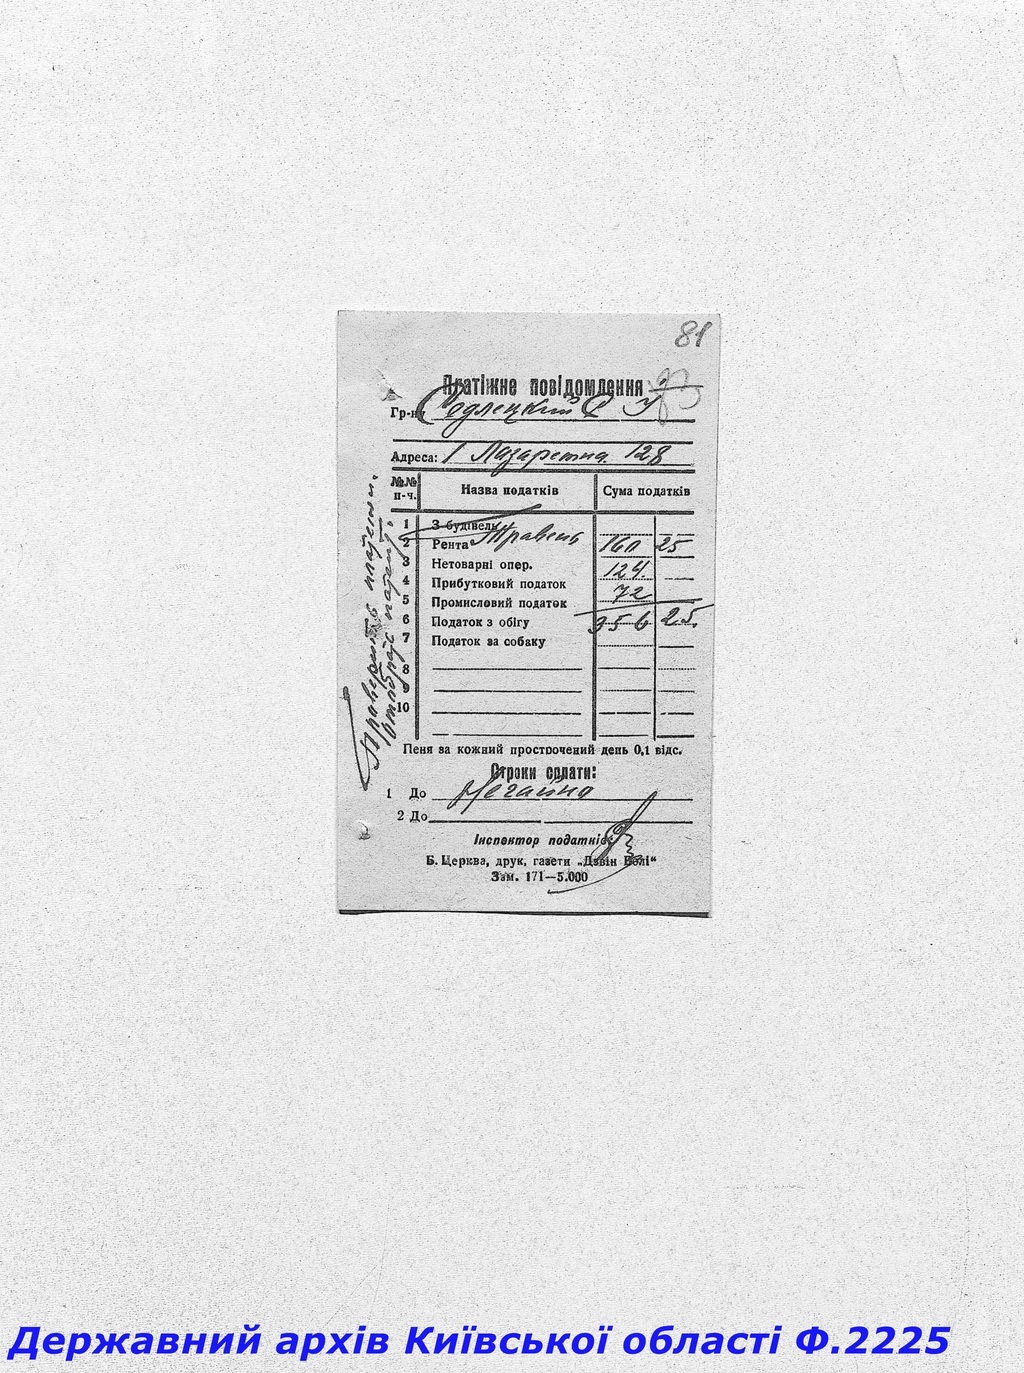 81
Платіжне повідомлення
Гр-н Содлецкий С У
Адреса: 1 Лазаретна 128
№№ п-ч. Назва податків Сума податків
1 З будівель
2 Рента Травень 160 25
3 Нетоварні опер. 124
4 Прибутковий податок 72
5 Промисловий податок
6 Податок з обігу 356 25
7 Податок за собаку
8
9
10
Пеня за кожний прострочений день 0,1 відс.
Строки оплати:
1 До Негайно
2 До
Інспектор податків:
Б. Церква, друк, газети „Дзвін Волі“
Зам. 171—5.000
Державний архів Київської області Ф.2225